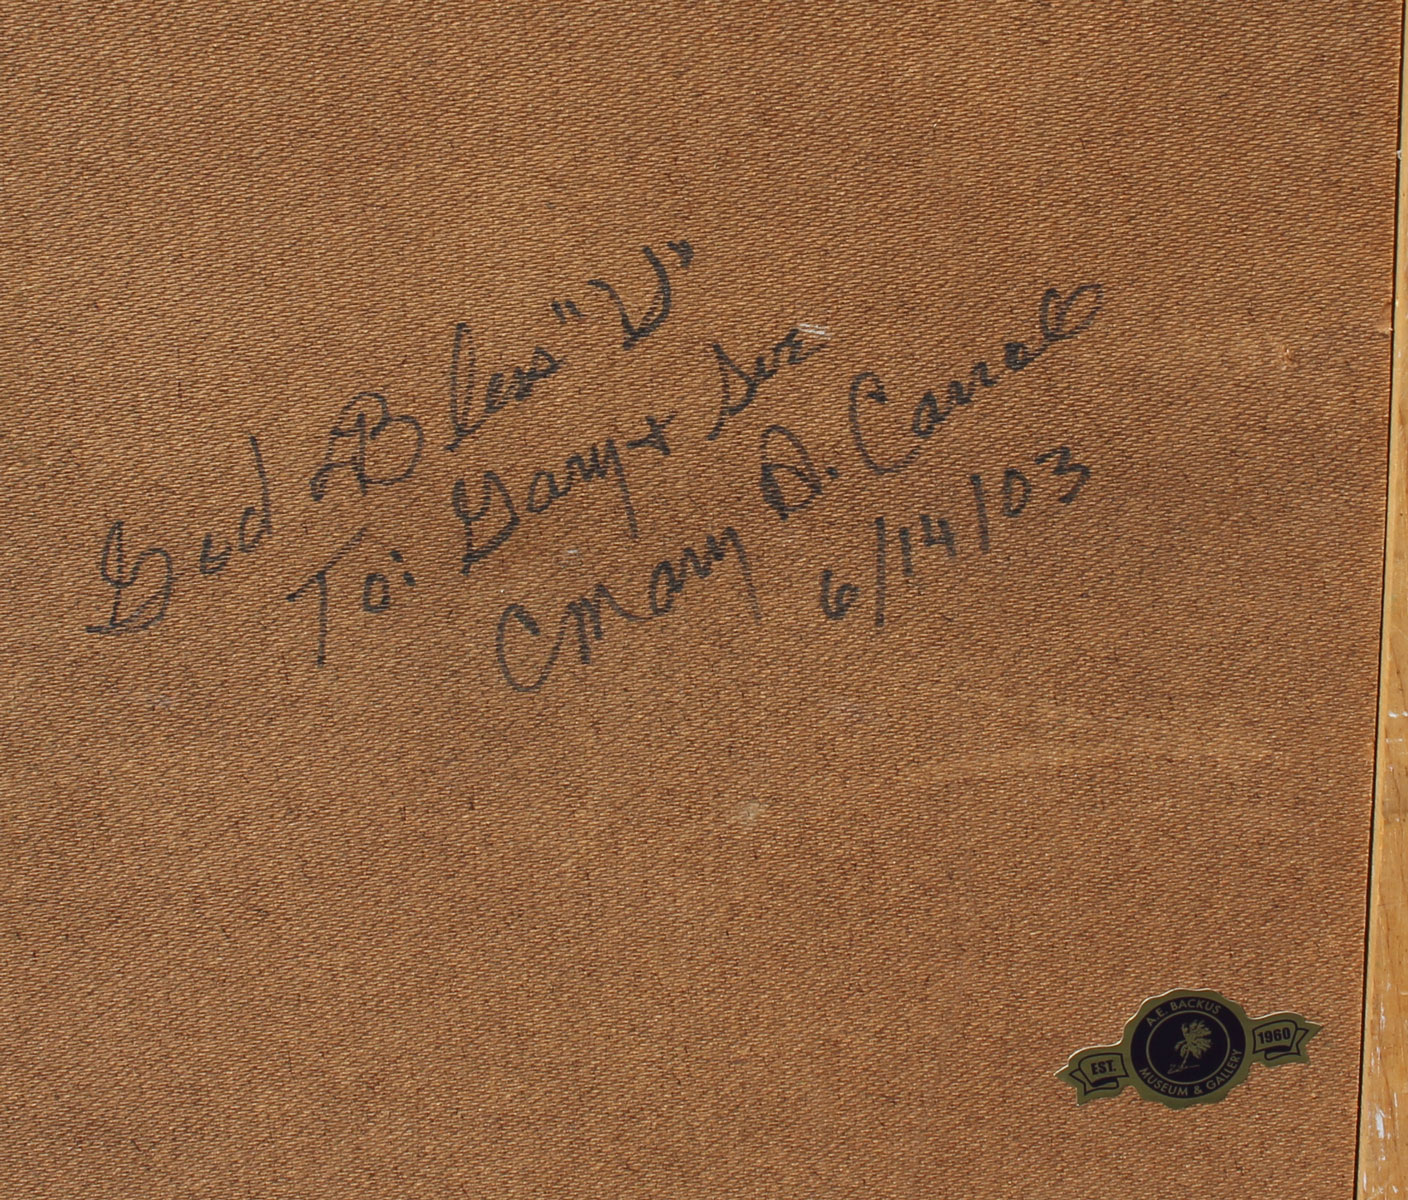 God Bless "U"
To: Gary + Sue
Mary A. Carroll
6/14/03
A.E. BACKUS
MUSEUM & GALLERY
EST.
1960